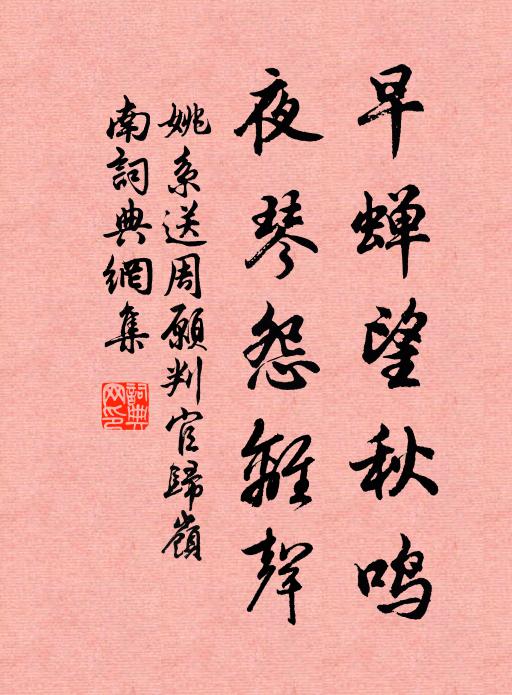 早蝉望秋鸣
夜琴怨離聲
姚系送周願判官歸嶺
南詞典網集
詞典
网印